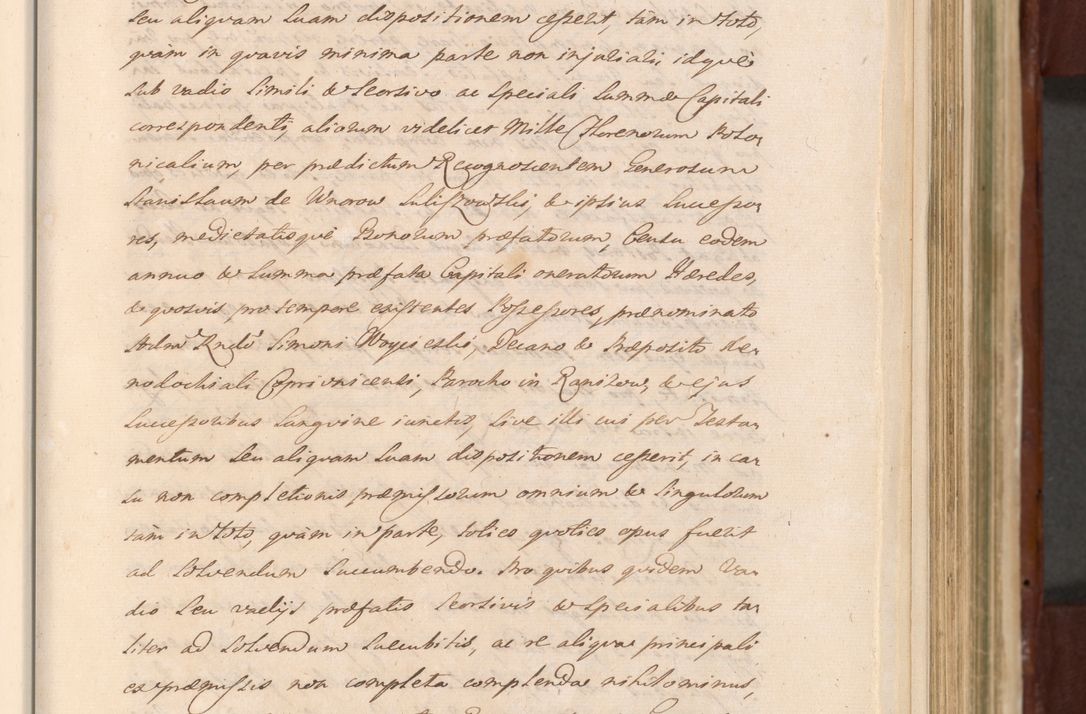 seu aliqvam suam dispositionem cesserit, tàm in toto,
qvàm in qvavis minima parte non injuliali idqvè
sub vadio simili & seorsivo ac speciali summæ Capitali
correspondenti, aliorum videlicet Mille Florenorum Polo-
nicalium, per prædictum Recognoscentem Generosum
Stanislaum de Unorow Suliszowski, & ipsius Successo-
res, medietatisqvè Bonorum præfatorum, Censu eodem
annuo & Summa præfata Capitali oneratorum Hæredes,
& qvosvis pro tempore existentes Possessores, prænominato
Admo Rndo Simoni Woycieski, Decano & Præposito Xe-
nodochiali Coprivnicensi, Parocho in Ranizow, & ejus
Successoribus Sangvine iunctis, sive illi cui per Testa-
mentum seu aliqvam suam dispositionem cesserit, in ca-
su non completionis præmissorum omnium & singulorum
tàm in toto, qvàm in parte, toties qvoties opus fuerit
ad solvendum succumbendo. Pro qvibus qvidem Va-
dio seu vadijs præfatis seorsivis & specialibus ta-
liter ad solvendum succubitis, ac re aliqva principali
ex præmissis non completa complenda nihilominus,